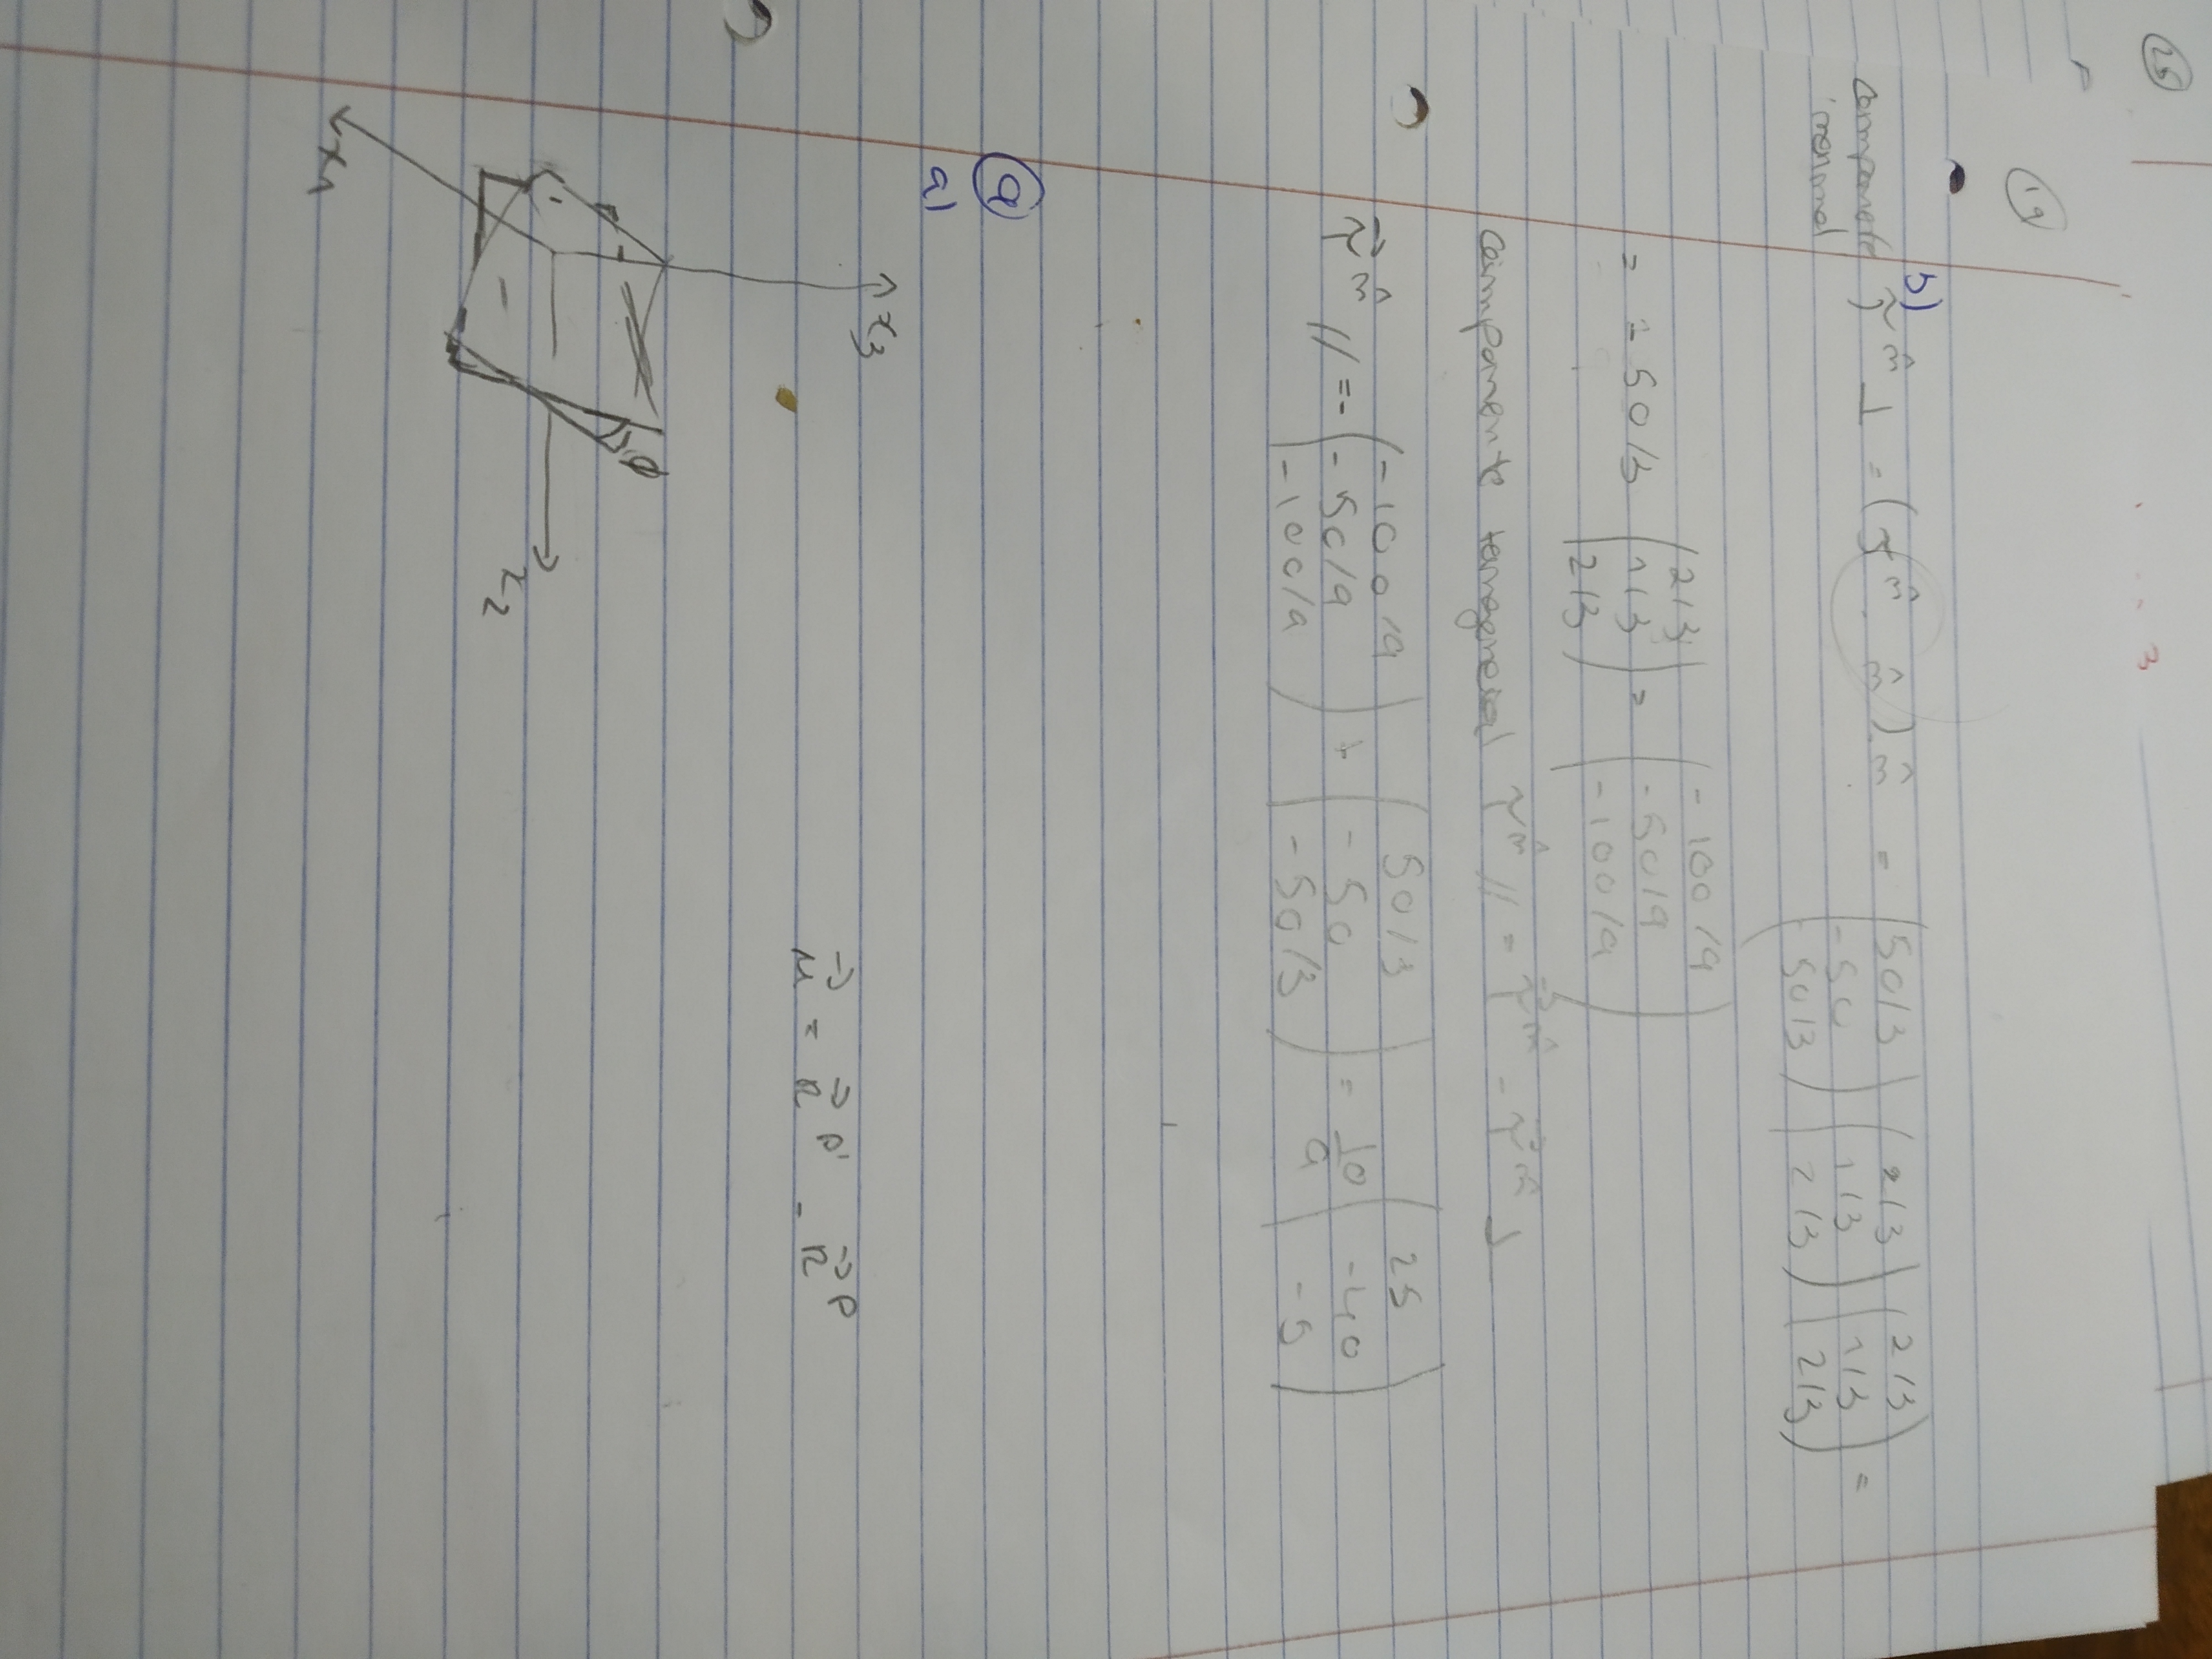 25
19
b)
Componente normal τ^n̂ ⊥ = (τ^n̂ . n̂) n̂ = (50/3 -50 -50/3) (2/3 1/3 2/3) (2/3 1/3 2/3) =
= -50/3 (2/3 1/3 2/3) = (-100/9 -50/9 -100/9)
Componente tangencial τ^n̂ // = τ^n̂ - τ^n̂ ⊥
τ^n̂ // = - (-100/9 -50/9 -100/9) + (50/3 -50 -50/3) = 10/9 (25 -40 -5)
9
a)
x3
x2
x1
ϕ
u = r p' - r p